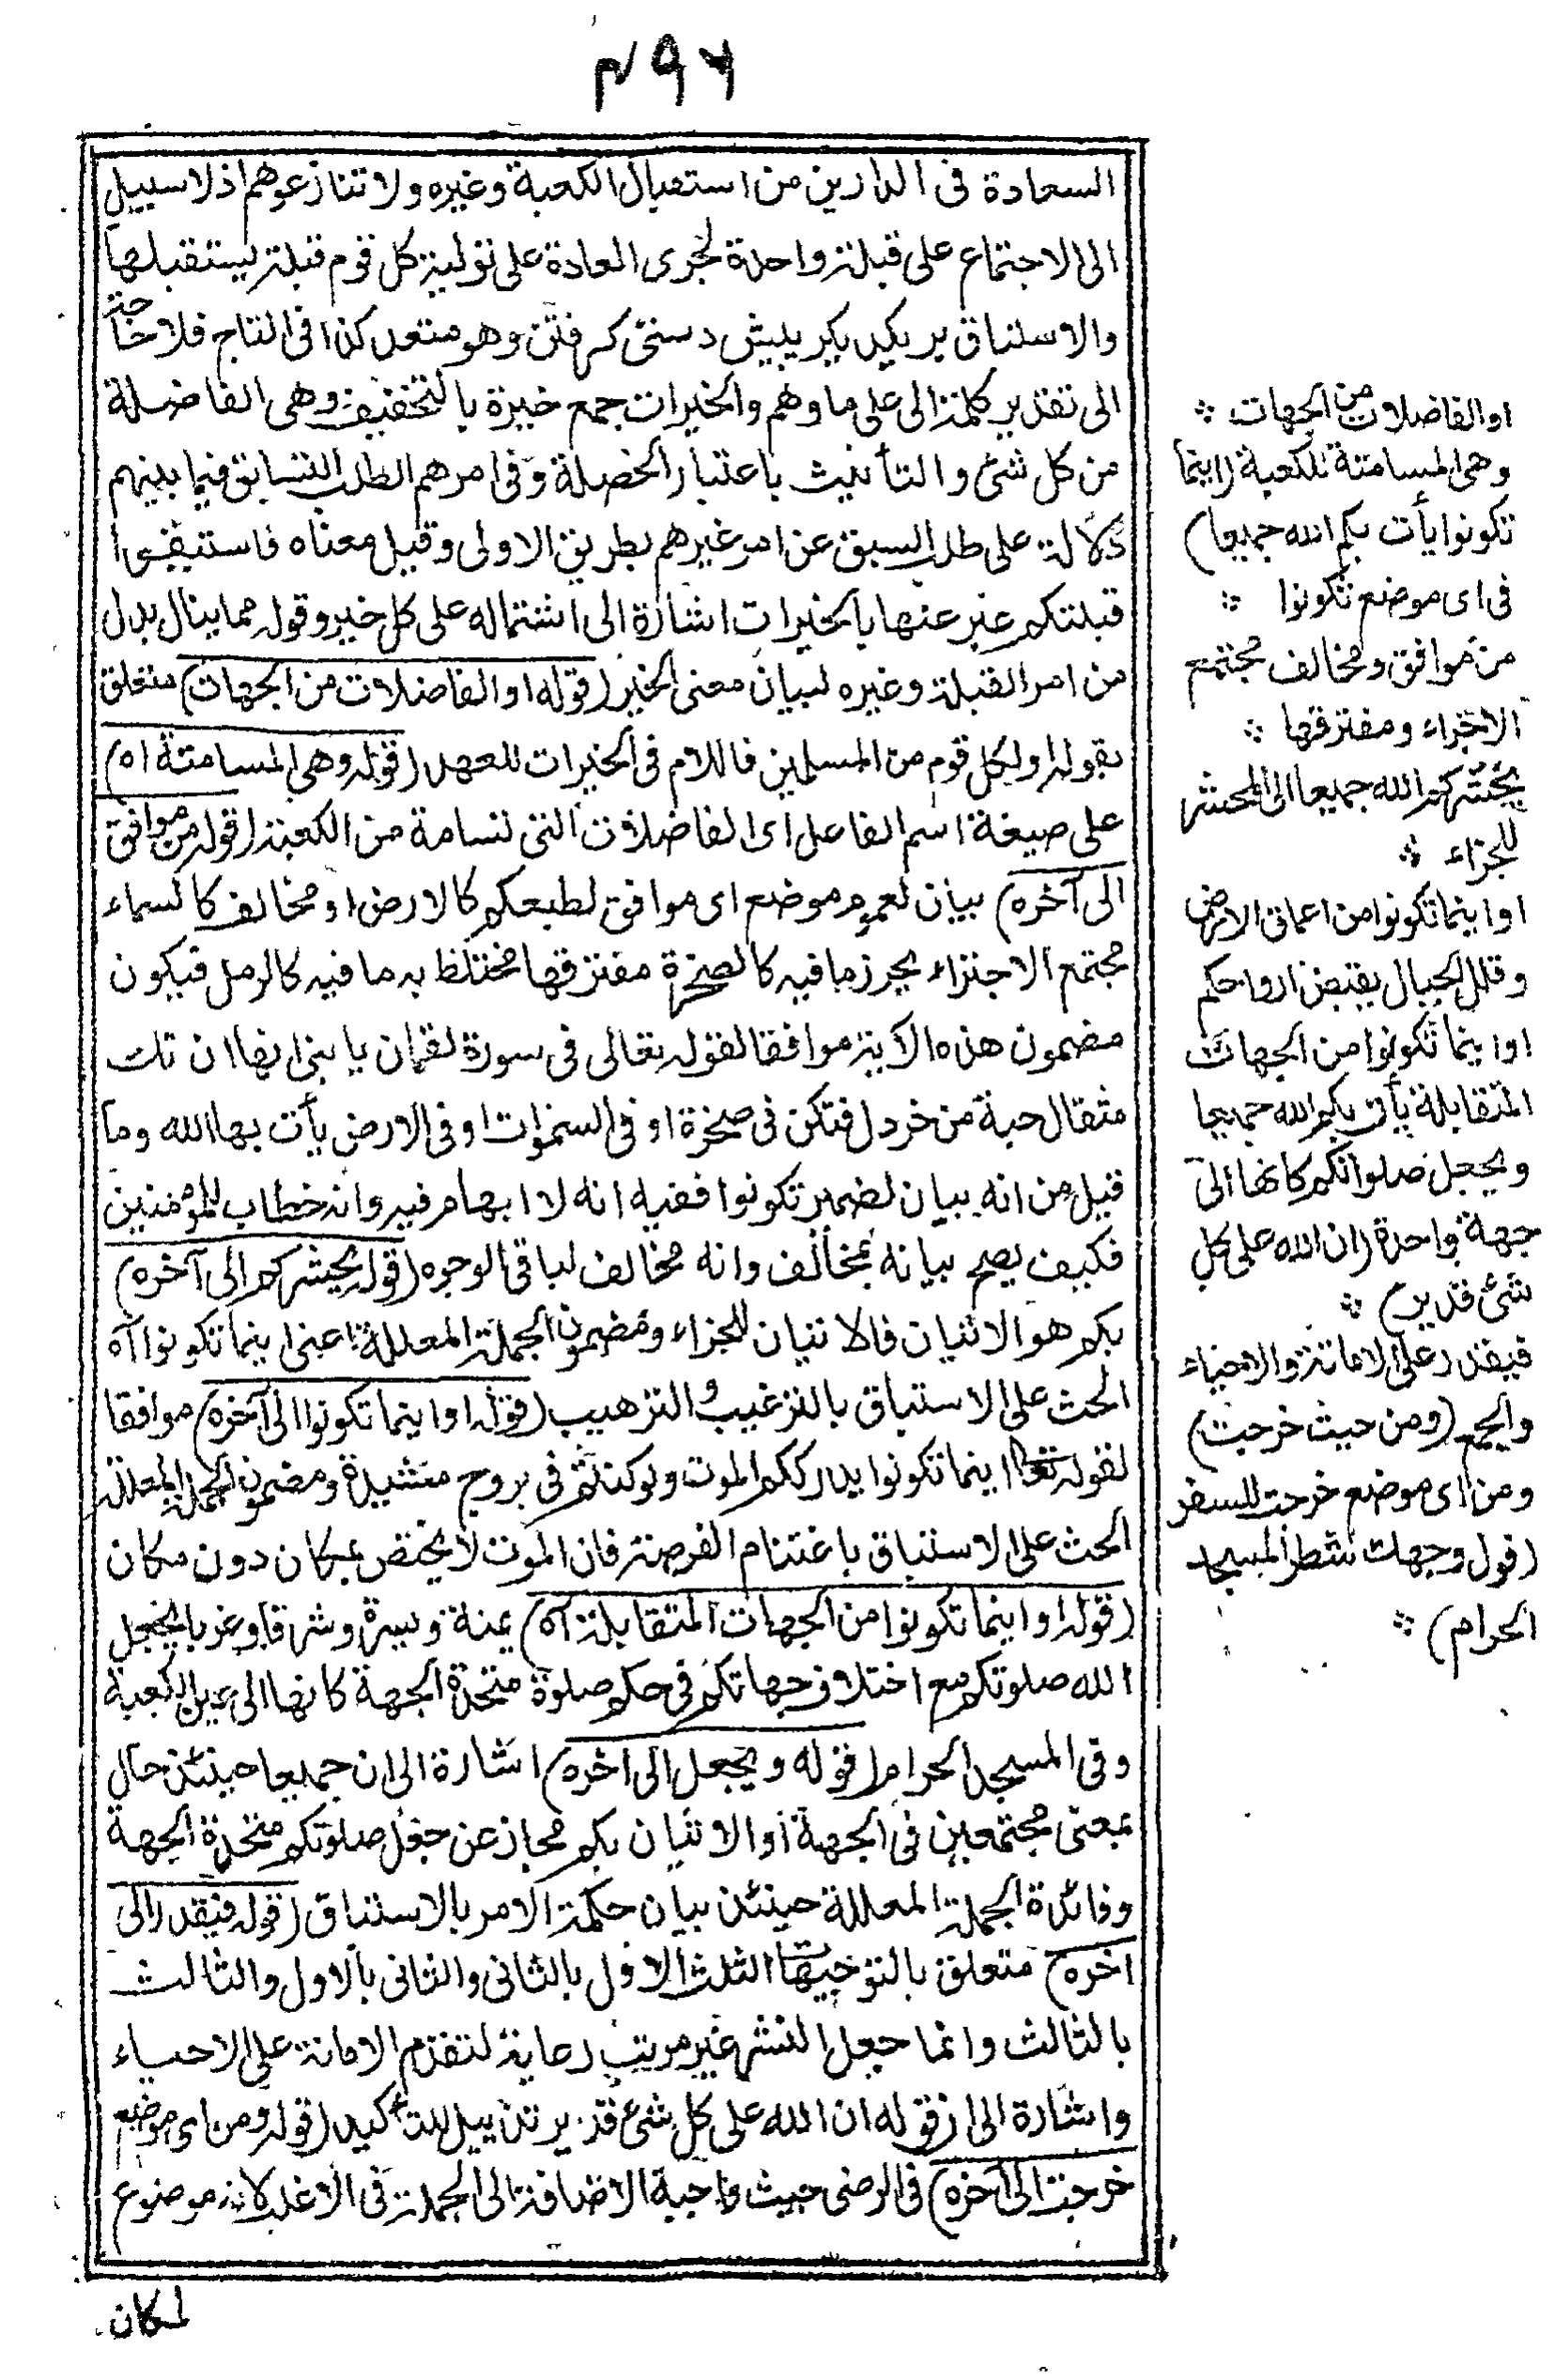 ٤٩٦
السعادة فى الدارين من استقبال الكعبة وغيره ولا تنازعوهم اذ لا سبيل
الى الاجتماع على قبلة واحدة لجرى العادة على تولية كل قوم قبلة يستقبلها
والاستباق بر يكديكر پيشى دستى كرفتن وهو متعد كذا فى التاج فلا حاجة
الى تقدير كلمة الى على ما وهم والخيرات جمع خيرة بالتخفيف وهى الفاضلة
من كل شئ والتأنيث باعتبار الخصلة وفى امرهم الطلب التسابق فيما بينهم
دلالة على طلب السبق عن امر غيرهم بطريق الاولى وقيل معناه فاستبقوا
قبلتكم عبر عنها بالخيرات اشارة الى اشتماله على كل خير وقوله مما ينال بدل
من امر القبلة وغيره لبيان معنى الخير (قوله او الفاضلات من الجهات) متعلق
بقوله او لكل قوم من المسلمين فاللام فى الخيرات للعهد (قوله وهى المسامتة اه)
على صيغة اسم الفاعل اى الفاضلات التى تسامة من الكعبة (قوله من موافق
الى آخره) بيان لعموم موضع اى موافق لطبعكم كالارض او مخالف كالسماء
مجتمع الاجزاء يحرز ما فيه كالصخرة مفترقها مختلط به ما فيه كالرمل فيكون
مضمون هذه الآية موافقا لقوله تعالى فى سورة لقمان يا بنى انها ان تك
مثقال حبة من خردل فتكن فى صخرة او فى السموات او فى الارض يأت بها الله وما
قيل من انه بيان لضمير تكونوا ففيه انه لا ابهام فيه وانه خطاب للمؤمنين
فكيف يصح بيانه بمخالف وانه مخالف لباقى الوجوه (قوله يحشركم الى آخره)
بكم هو الاتيان فالاتيان للجزاء ومضمون الجملة المعللة اعنى اينما تكونوا آه
الحث على الاستباق بالترغيب والترهيب (قوله او اينما تكونوا الى آخره) موافقا
لقوله تعالى اينما تكونوا يدرككم الموت ولو كنتم فى بروج مشيدة ومضمون الجملة المعللة
الحث على الاستباق باغتنام الفرصة فان الموت لا يختص بمكان دون مكان
(قوله او اينما تكونوا من الجهات المتقابلة آه) يمنة ويسرة وشرقا وغربا يجعل
الله صلوتكم مع اختلاف جهاتكم فى حكم صلوة متحدة الجهة كانها الى عين الكعبة
وفى المسجد الحرام (قوله ويجعل الى اخره) اشارة الى ان جميعا حينئذ حال
بمعنى مجتمعين فى الجهة او الاتيان بكم مجاز عن جعل صلوتكم متحدة الجهة
وفائدة الجملة المعللة حينئذ بيان حكمة الامر بالاستباق (قوله فيقدر الى
اخره) متعلق بالتوجيهات الثلث الاول بالثانى والثانى بالاول والثالث
بالثالث وانما جعل النشر غير مرتب رعاية لتقدم الاماتة على الاحياء
واشارة الى ان قوله ان الله على كل شئ قدير تذييل للتأكيد (قوله ومن اى موضع
خرجت الى آخره) فى الرضى حيث واجبة الاضافة الى الجملة فى الاغلب لانه موضوع
لمكان
او الفاضلات من الجهات
وهى المسامتة للكعبة (اينما
تكونوا يأت بكم الله جميعا)
فى اى موضع تكونوا
من موافق ومخالف مجتمع
الاجزاء ومفترقها
يحشركم الله جميعا الى المحشر
للجزاء
او اينما تكونوا من اعماق الارض
وقلل الجبال يقبض ارواحكم
او اينما تكونوا من الجهات
المتقابلة يأت بكم الله جميعا
ويجعل صلواتكم كانها الى
جهة واحدة (ان الله على كل
شئ قدير)
فيقدر على الاماتة والاحياء
والجمع (ومن حيث خرجت)
ومن اى موضع خرجت للسفر
(فول وجهك شطر المسجد
الحرام)